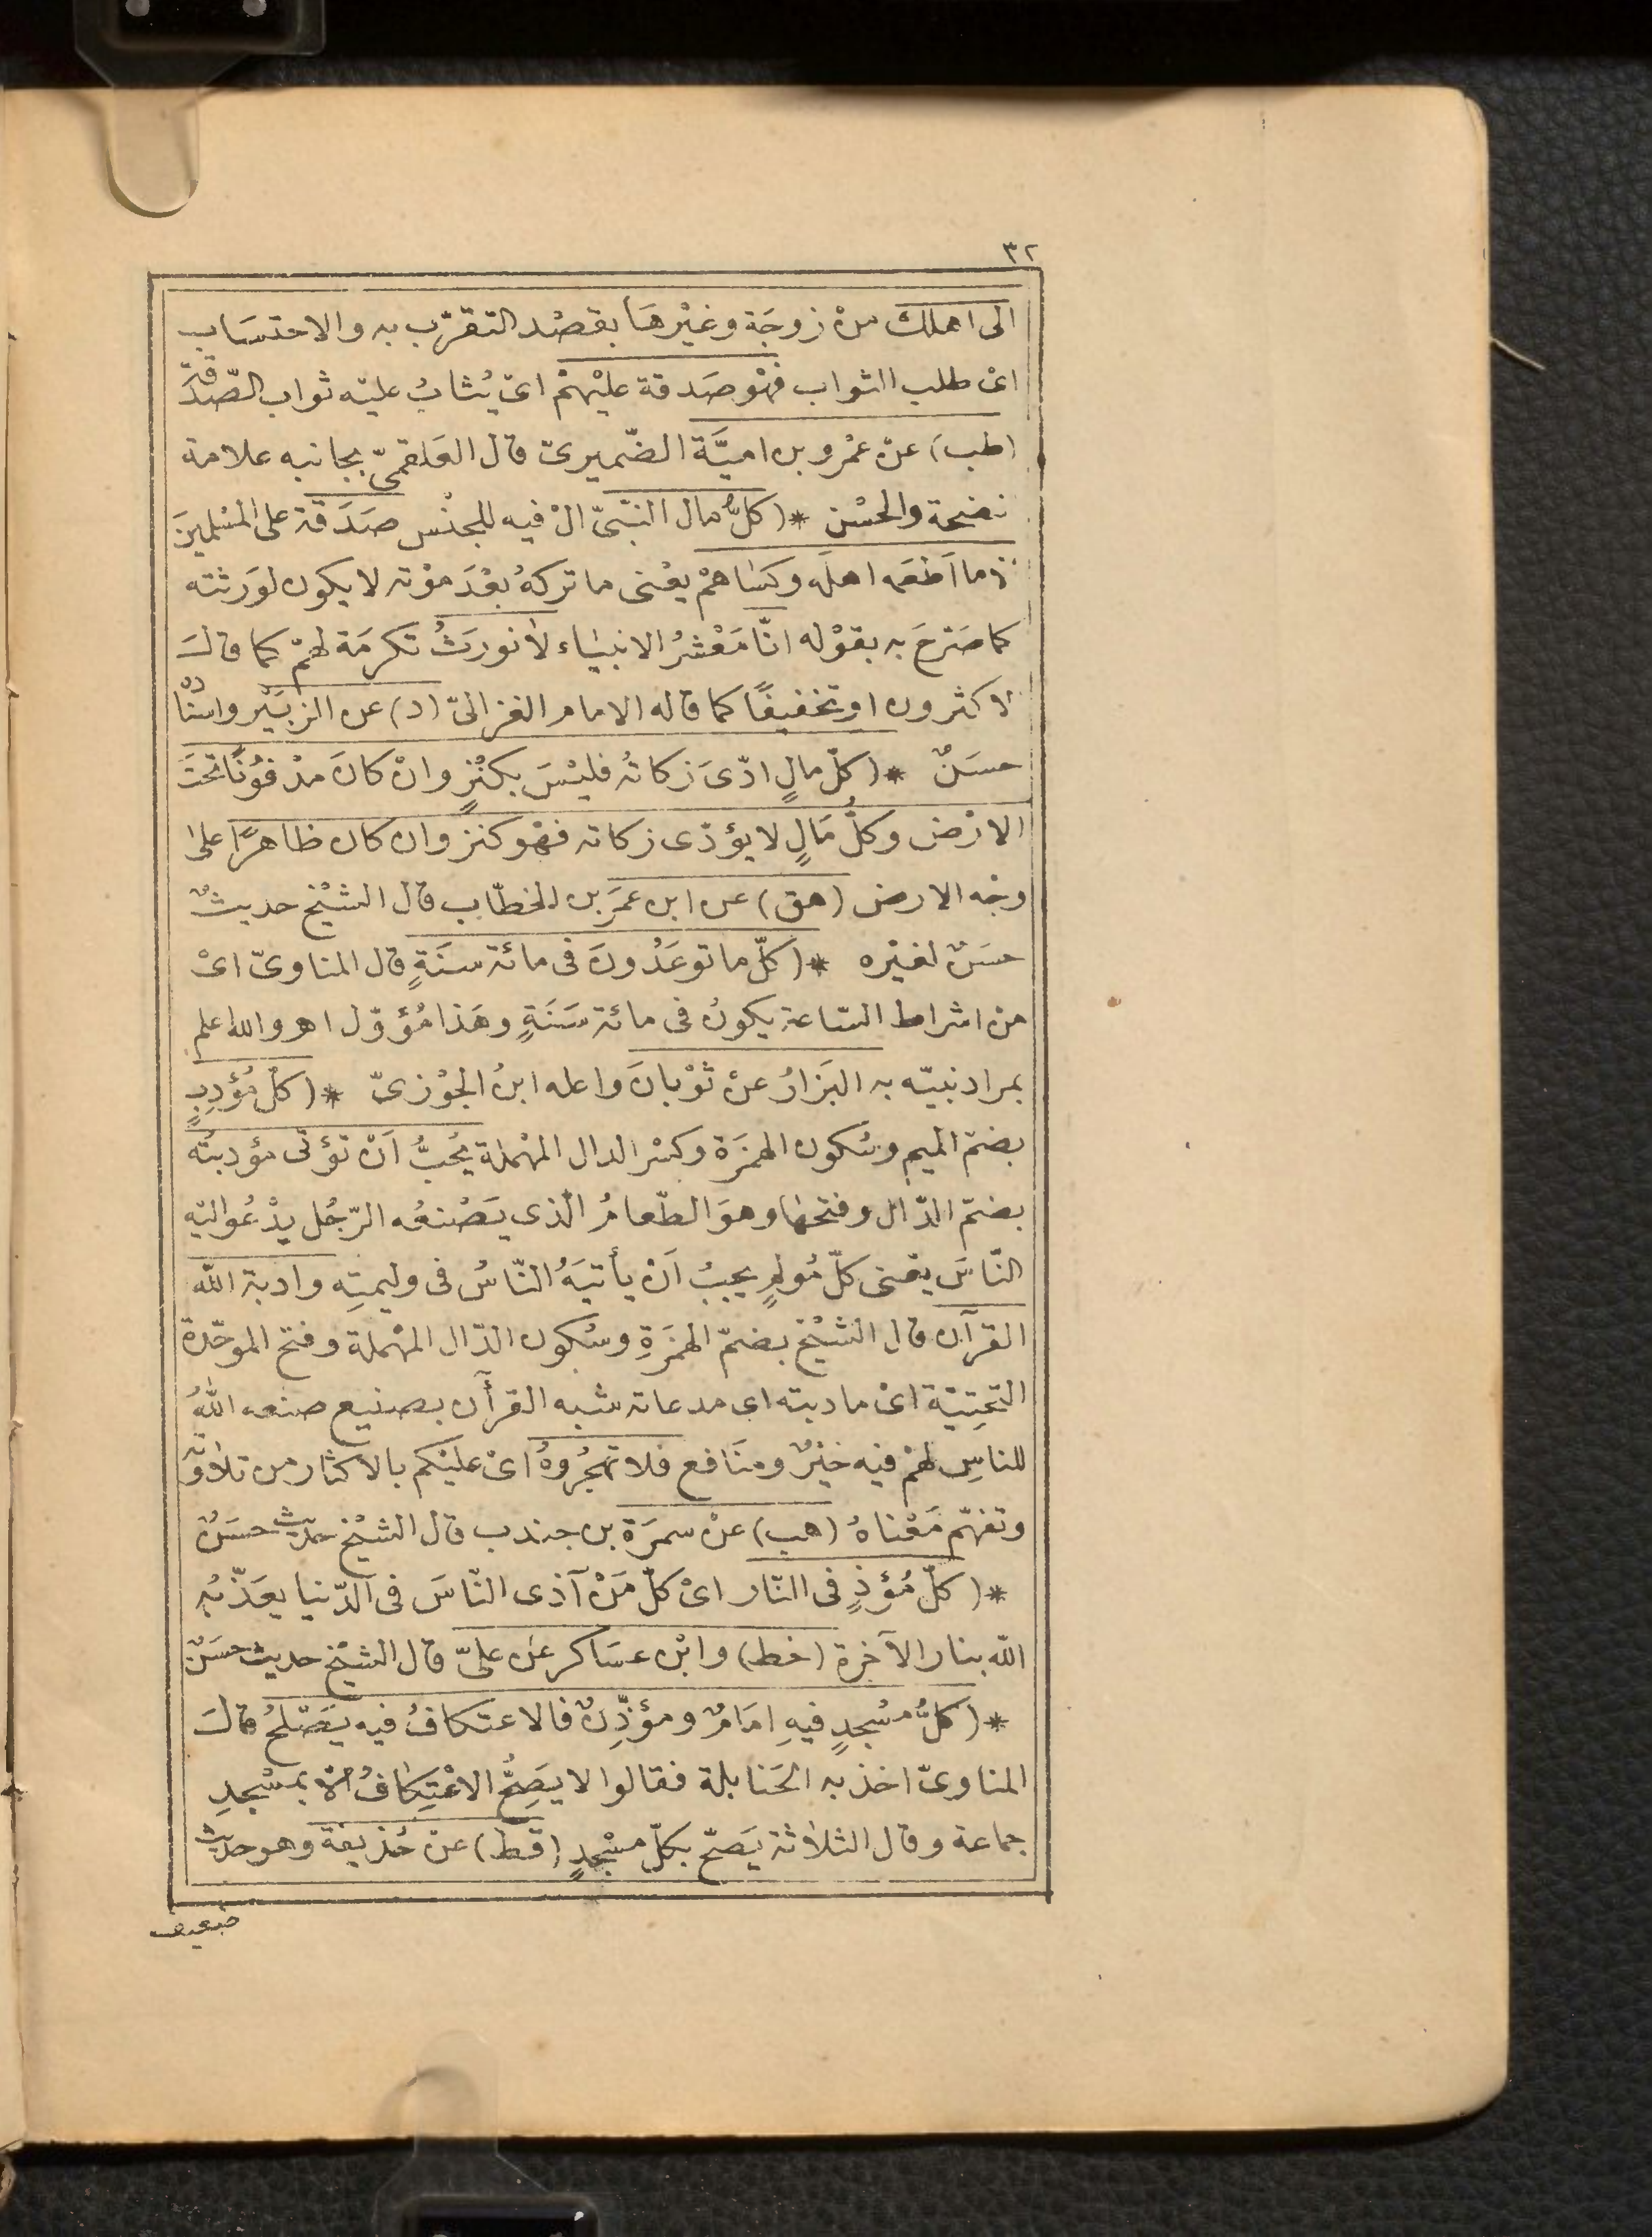 ٣٢
الى اهلك منْ زوجَة وغيْرهَا بقصْد التقرّب به والاحتسَاب
اىْ طلب الثواب فهْو صَدقة عليْهمْ اىْ يُثابُ عليْه ثواب الصّدَقة
(طب) عنْ عمْرو بن اميَّة الضّميرىّ قال العَلقمىّ بجانبه علامة
الصحة والحسْن * (كلُّ مال النّبىّ الْ فيه للجنْس صَدَقة على المسْلمينَ
الا ما اَطعَمه اهلَه وكسَاهمْ يعْنى ما تركهُ بعْدَ موْته لا يكون لوَرثته
كما صَرّحَ به بقوْله انّا مَعْشرُ الانبيَاء لا نورَثُ تكرمَة لهمْ كما قالَ
الاكثرون او تخفيفًا كما قاله الامام الغزالىّ (د) عن الزبَيْر واسْنادُهُ
حسَنٌ * (كلّ مالٍ ادّىَ زكاتهُ فليْسَ بكنْزٍ وانْ كانَ مدْفوُنًا تحْتَ
الارْض وكلُّ مَالٍ لا يؤدّى زكاته فهْو كنز وان كان ظاهرًا على
وجْه الارض (هق) عن ابن عمَر بن الخطّاب قال الشيْخ حديثٌ
حسَن لغيْره * (كلّ ما توعَدُونَ فى مائة سنَةٍ قال المناوىّ اىْ
من اشراط السّاعة يكونُ فى مائة سَنَةٍ وهَذا مُؤوّل اهـ والله اعلم
بمراد نبيّه به البَزارُ عنْ ثوْبانَ واعله ابنُ الجوْزىّ * (كلُّ مُؤْدِبٍ
بضمّ الميم وسُكون الهمزَة وكسْر الدال المهْملة يُحبُّ اَنْ تؤتى مؤدبتُه
بضمّ الدّال وفتحهَا وهوَ الطّعامُ الّذى يَصْنعُه الرّجُل يدْعُو اليْه
النّاسَ يعْنى كلّ مُولمٍ يحبُ اَنْ يأتيَهُ النّاسُ فى وليمتِه وادبة الله
القرآن قال الشيْخ بضمّ الهمزَةِ وسُكون الدّال المهْملة وفتح الموحّدة
التحتِيّة اىْ مادبته اى مدعاته شبه القرأن بصنيع صنعه اللهُ
للناسِ لهمْ فيه خيْرٌ ومنَافع فلا تهجُروهُ اىْ عليْكم بالاكثار من تلاوَته
وتفهّم مَعْناهُ (هب) عنْ سمرَة بن جندب قال الشيْخ حديث حسَنٌ
* (كلّ مُؤذٍ فى النّار اىْ كلّ مَنْ آذى النّاسَ فى الدّنيا يعَذّبُه
الله بنار الآخرة (خط) وابْن عسَاكر عن علىّ قال الشيْخ حديث حسَنٌ
* (كلُّ مسْجدٍ فيهِ امَامٌ ومؤذّنٌ فالاعتكافُ فيه يَصْلحُ قالَ
المناوىّ اخذ به الحَنابلة فقالوا لا يَصِحُّ الاعْتِكافُ الّا بمسْجدِ
جماعة وقال الثلاثة يَصحّ بكلّ مسْجدٍ (قط) عنْ حُذيفة وهو حديث
ضعيف